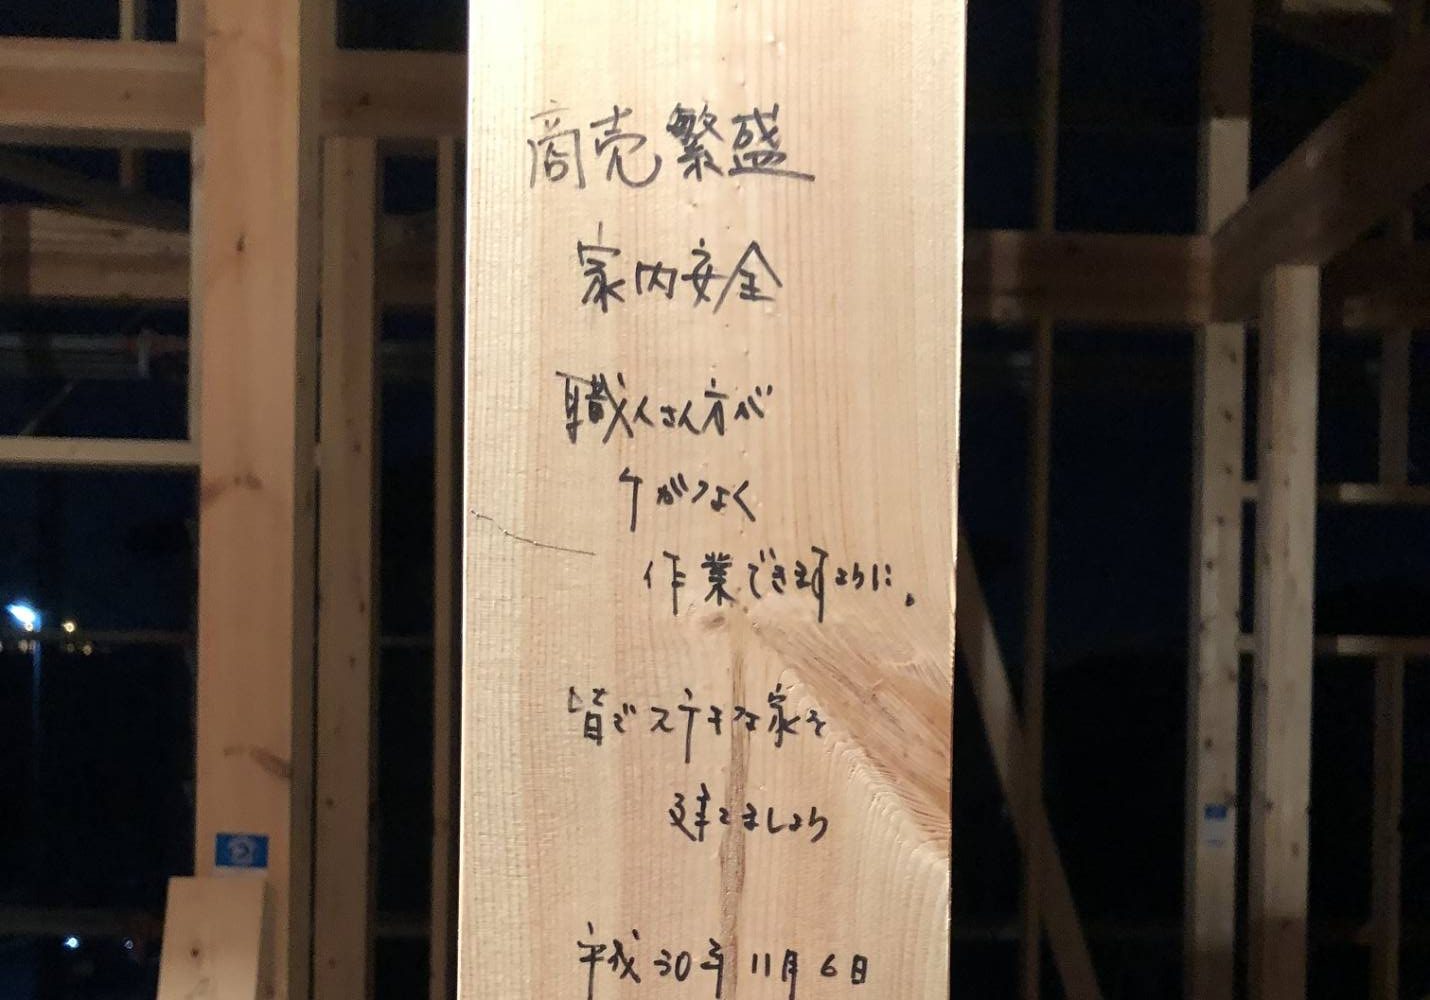 商売繁盛
家内安全
職人さん方が
ケガなく
作業できますように。
皆でステキな家を
建てましょう
平成30年11月6日